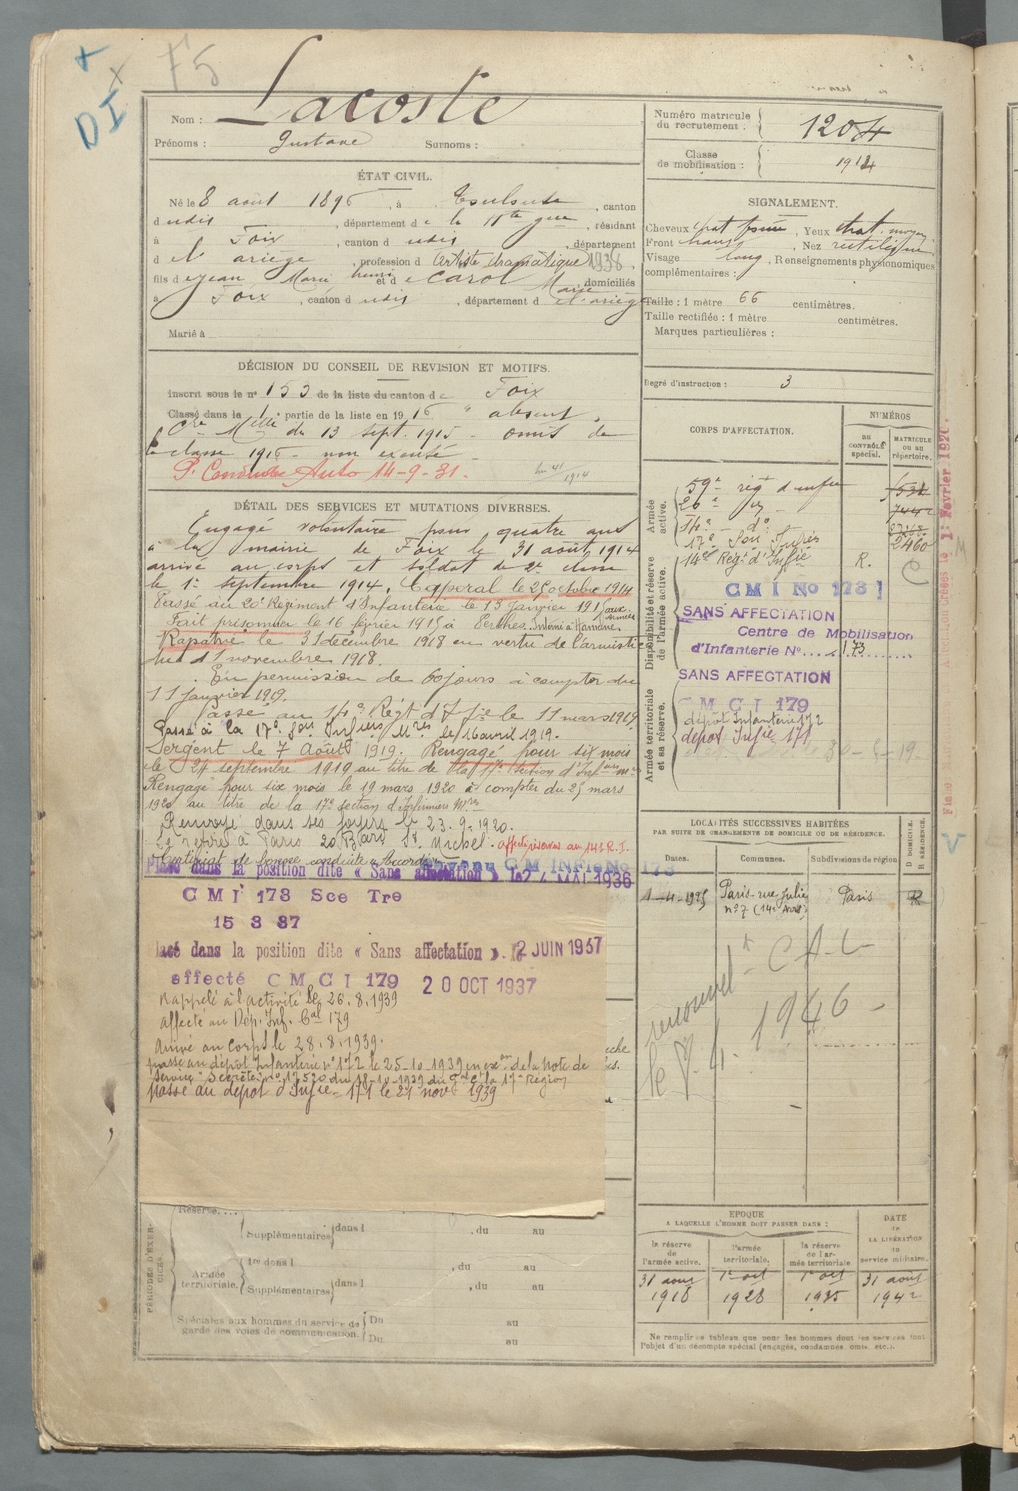 F5
DI
Nom : Lacoste
Prénoms : Gustave Surnoms :
Numéro matricule du recrutement : 1204
Classe de mobilisation : 1914
ÉTAT CIVIL.
Né le 8 août 1896, à Toulouse, canton
dudit, département de la Hte Gne, résidant
à Foix, canton dudit, département
de l'Ariège, profession d'artiste dramatique 1938,
fils de Jean Marie Henri et de Carol Marie domiciliés
à Foix, canton dudit, département de l'Ariège
Marié à
SIGNALEMENT.
Cheveux chat foncé, Yeux chat. moyen
Front haut, Nez rectiligne
Visage long, Renseignements physionomiques
complémentaires :
Taille : 1 mètre 66 centimètres.
Taille rectifiée : 1 mètre centimètres.
Marques particulières :
Degré d'instruction : 3
DÉCISION DU CONSEIL DE REVISION ET MOTIFS.
Inscrit sous le n° 153 de la liste du canton de Foix
Classé dans la 1 partie de la liste en 1916 " absent,
Cre Melle du 13 sept. 1915 - omis de
la classe 1916 - non excusé
P. Conduire Auto 14-9-31.
DÉTAIL DES SERVICES ET MUTATIONS DIVERSES.
Engagé volontaire pour quatre ans
à la mairie de Foix le 31 août 1914
arrivé au corps et soldat de 2e classe
le 1er septembre 1914. Caporal le 25 octobre 1914
Passé au 20e Régiment d'Infanterie le 13 janvier 1915 aux Armées
Fait prisonnier le 16 février 1915 à Perthes. Interné à Hameln.
Rapatrié le 31 décembre 1918 en vertu de l'armistice
du 11 novembre 1918.
En permission de 60 jours à compter du
11 janvier 1919.
Passé au 14e Régt d'Infie le 11 mars 1919
Passé à la 17e Son Infiers Mres le 16 avril 1919.
Sergent le 7 Août 1919. Rengagé pour six mois
le 24 septembre 1919 au titre de la 17e Section d'Infiers Mres
Rengagé pour six mois le 19 mars 1920 à compter du 25 mars
1920 au titre de la 17e section d'Infirmiers Mres
Renvoyé dans ses foyers le 23.9.1920.
Se retire à Paris 20 Bard St Michel. affecté réserve au 14e R.I.
Certificat de bonne conduite "Accordé"
Placé dans la position dite « Sans affectation » le 24 MAI 1936
CMI 173 Sce Tre
15 3 37
lacé dans la position dite « Sans affectation ». le 2 JUIN 1937
affecté CMCI 179 20 OCT 1937
Rappelé à l'activité le 26.8.1939
affecté au Dép. Inf. Cal 179
Arrivé au corps le 28.8.1939.
passé au dépôt Infanterie n° 172 le 25-10-1939 en exon de la note de
service Secrète n° 17520 du 18-10-1939 du Gal Ct la 17e Région
passé au dépôt d'Infie 171 le 21 nov 1939
CORPS D'AFFECTATION.
NUMÉROS
DU CONTRÔLE spécial.
MATRICULE ou au répertoire.
Armée active.
59e régt d'infie
20e do
14e - do
17e Son Infirs 2460
Disponibilité et réserve de l'armée active.
14e Régt d'Infie R.
CMI No 173
SANS AFFECTATION
Centre de Mobilisation
d'Infanterie N° 173
SANS AFFECTATION
Armée territoriale et sa réserve.
CMCI 179
dépôt Infanterie 172
dépôt Infie 171
LOCALITÉS SUCCESSIVES HABITÉES
PAR SUITE DE CHANGEMENTS DE DOMICILE OU DE RÉSIDENCE.
Dates. Communes. Subdivisions de région. D DOMICILE. R RÉSIDENCE.
1-4-1925 Paris-rue Julie n° 7 (14e Arrt) Paris R
1946
PÉRIODES D'EXERCICES.
Réserve....
Supplémentaires dans l , du au
Armée territoriale.
1re dans l , du au
Supplémentaires dans l , du au
Spéciales aux hommes du service de garde des voies de communication.
Du au
Du au
EPOQUE
A LAQUELLE L'HOMME DOIT PASSER DANS :
la réserve de l'armée active.
l'armée territoriale.
la réserve de l'armée territoriale
DATE de LA LIBÉRATION du service militaire.
31 août 1918
1er oct 1928
1er oct 1935
31 août 1942
Ne remplir ce tableau que pour les hommes dont les services font
l'objet d'un décompte spécial (engagés, condamnés, omis, etc.).